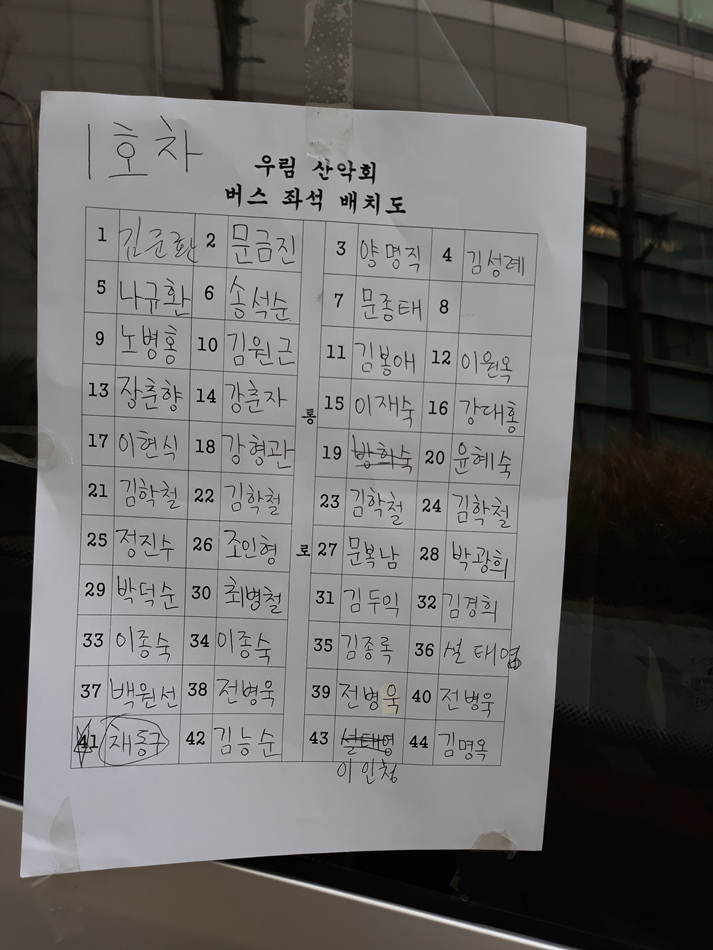 1호차
우림 산악회
버스 좌석 배치도
1 김준환 2 문금진 3 양명직 4 김성례
5 나규환 6 송석순 7 문종태 8
9 노병홍 10 김원근 11 김봉애 12 이원옥
13 장춘향 14 강춘자 통 15 이재숙 16 강대홍
17 이현식 18 강형관 19 방희숙 20 윤혜숙
21 김학철 22 김학철 23 김학철 24 김학철
25 정진수 26 조인형 로 27 문복남 28 박광희
29 박덕순 30 최병철 31 김두익 32 김경희
33 이종숙 34 이종숙 35 김종록 36 설태영
37 백원선 38 전병욱 39 전병욱 40 전병욱
41 재동구 42 김능순 43 설태영 44 김명옥
이인청